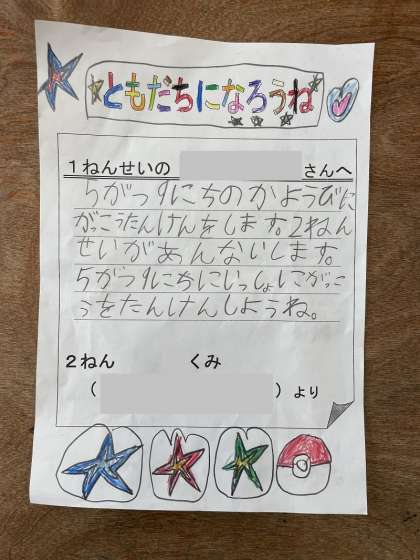 ともだちになろうね
1ねんせいの さんへ
5がつ9にちのかようびに
がっこうたんけんをします。2ねん
せいがあんないします。
5がつ9にちにいっしょにがっこ
うをたんけんしようね。
2ねん くみ
( ) より